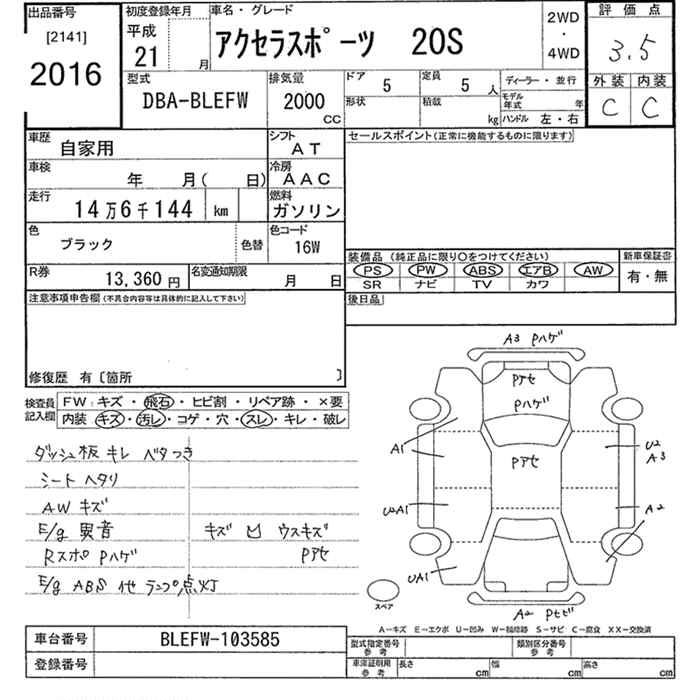 出品番号 初度登録年月 車名・グレード 2WD 評価点
[2141] 平成 アクセラスポーツ 20S ・
2016 21 月 4WD 3.5
型式 排気量 ドア 5 定員 5 人 ディーラー・並行 外装 内装
DBA-BLEFW 2000 CC 形状 積載 kg モデル年式 年 C C
ハンドル 左・右
車歴 自家用 シフト AT セールスポイント(正常に機能するものに限ります)
車検 年 月( 日) 冷房 AAC
走行 14万6千144 km 燃料 ガソリン
色 ブラック 色替 色コード 16W 装備品(純正品に限り〇をつけてください) 新車保証書
PS PW ABS エアB AW 有・無
SR ナビ TV カワ
R券 13,360 円 名変通知期限 月 日 後日品
注意事項申告欄(不具合内容等は具体的に記入して下さい)
修復歴 有〔箇所 〕
検査員記入欄 FW:キズ・飛石・ヒビ割・リペア跡・×要
内装 キズ・汚レ・コゲ・穴・スレ・キレ・破レ
ダッシュ板 キレ ベタつき
シート ヘタリ
AW キズ
E/g 異音 キズ 凹 ウスキズ
Rスポ Pハゲ Pアセ
E/g ABS 他 ランプ点灯
A3 Pハゲ
Pアセ
Pハゲ
A1 Pアセ U2
A3
U2A1 A2
UA1
スペア
A2 Pヒビ
A−キズ E−エクボ U−凹み W−補修跡 S−サビ C−腐食 XX−交換済
車台番号 BLEFW-103585 型式指定番号 参考 類別区分番号 参考
登録番号 車庫証明用 参考 長さ cm 幅 cm 高さ cm